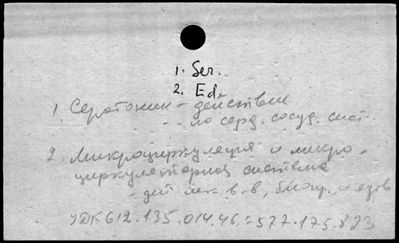 1. Ser.
2. Ed.
1. Серотонин - действие
-- по серд. сосуд. сист.
2. Микроциркуляция и микро-
циркуляторная система
- дит. лек. в-в, биогр. и ядов
УДК 612.135.014.46:577.175.823